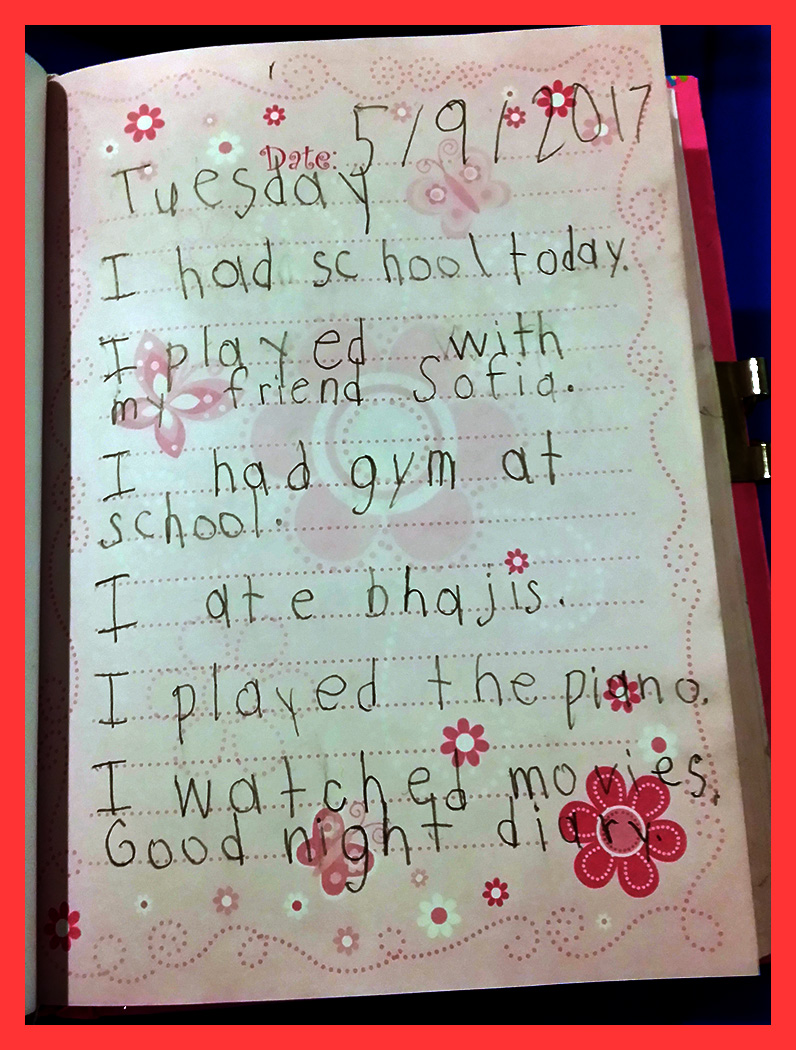 Date: 5/9/2017
Tuesday
I had school today.
I played with
my friend Sofia.
I had gym at
school.
I ate bhajis.
I played the piano.
I watched movies.
Good night diary.